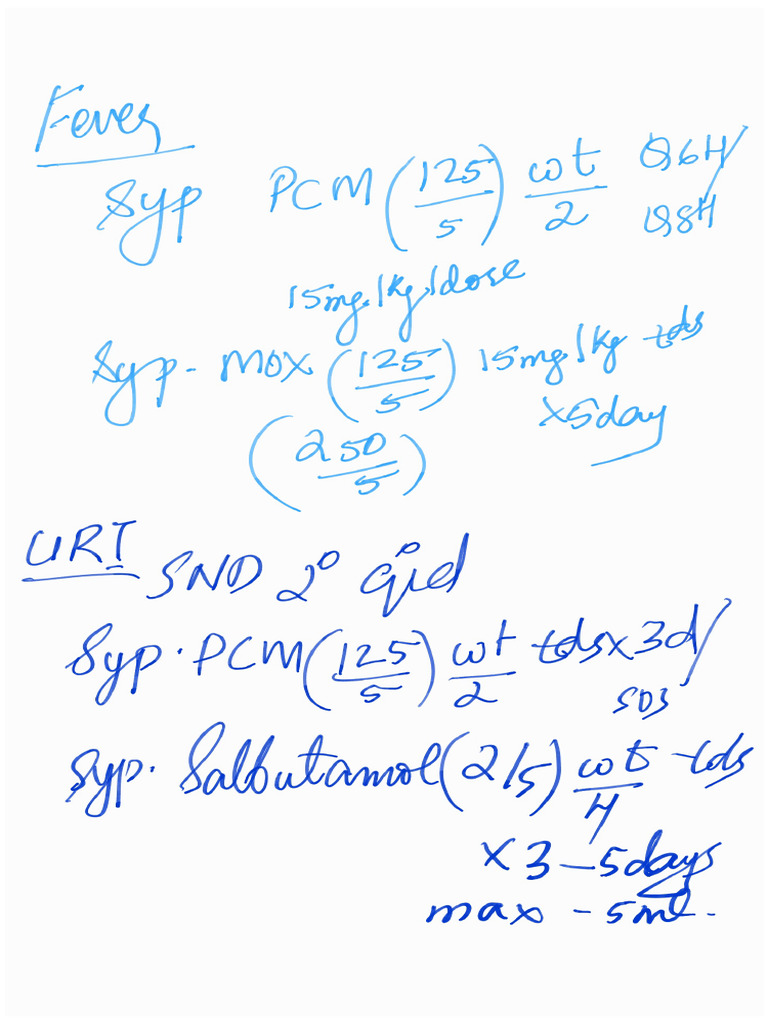 Fever
Syp PCM (125/5) wt/2 Q6H/
Q8H
15mg/kg/dose
Syp - mox (125/5) 15mg/kg tds
x5day
(250/5)
URI SND 2° qid
Syp. PCM (125/5) wt/2 tds x 3d/
SOS
Syp. Salbutamol (2/5) wt/4 tds
x 3-5days
max - 5ml.